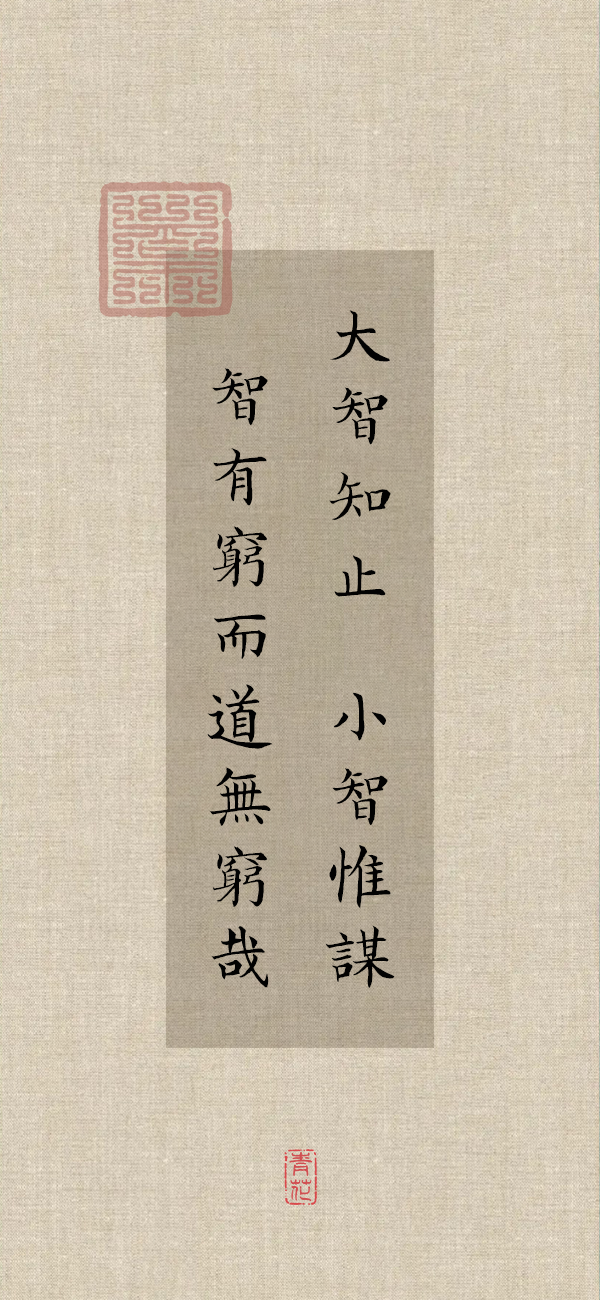 大智知止　小智惟謀
智有窮而道無窮哉
青花